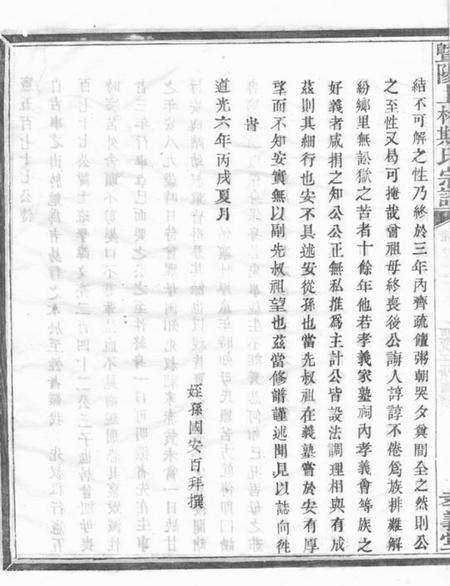 暨陽上林斯氏宗譜
孝義堂
結不可解之性乃終於三年內齊疏饘粥朝哭夕奠間全之然則公
之至性又曷可掩哉當祖母終喪後公誨人諄諄不倦為族排難解
紛鄉里無訟獄之苦者十餘年他若孝義家塾祠內孝義會等族之
好義者咸捐之知公公正無私推為主計公皆設法調理相與有成
茲則其細行也安不具述安從孫也當先叔祖在義塾嘗於安有厚
望而不知安實無以副先叔祖望也茲當修譜謹述聞見以誌向徃
旹
道光六年丙戌夏月
姪孫國安百拜撰